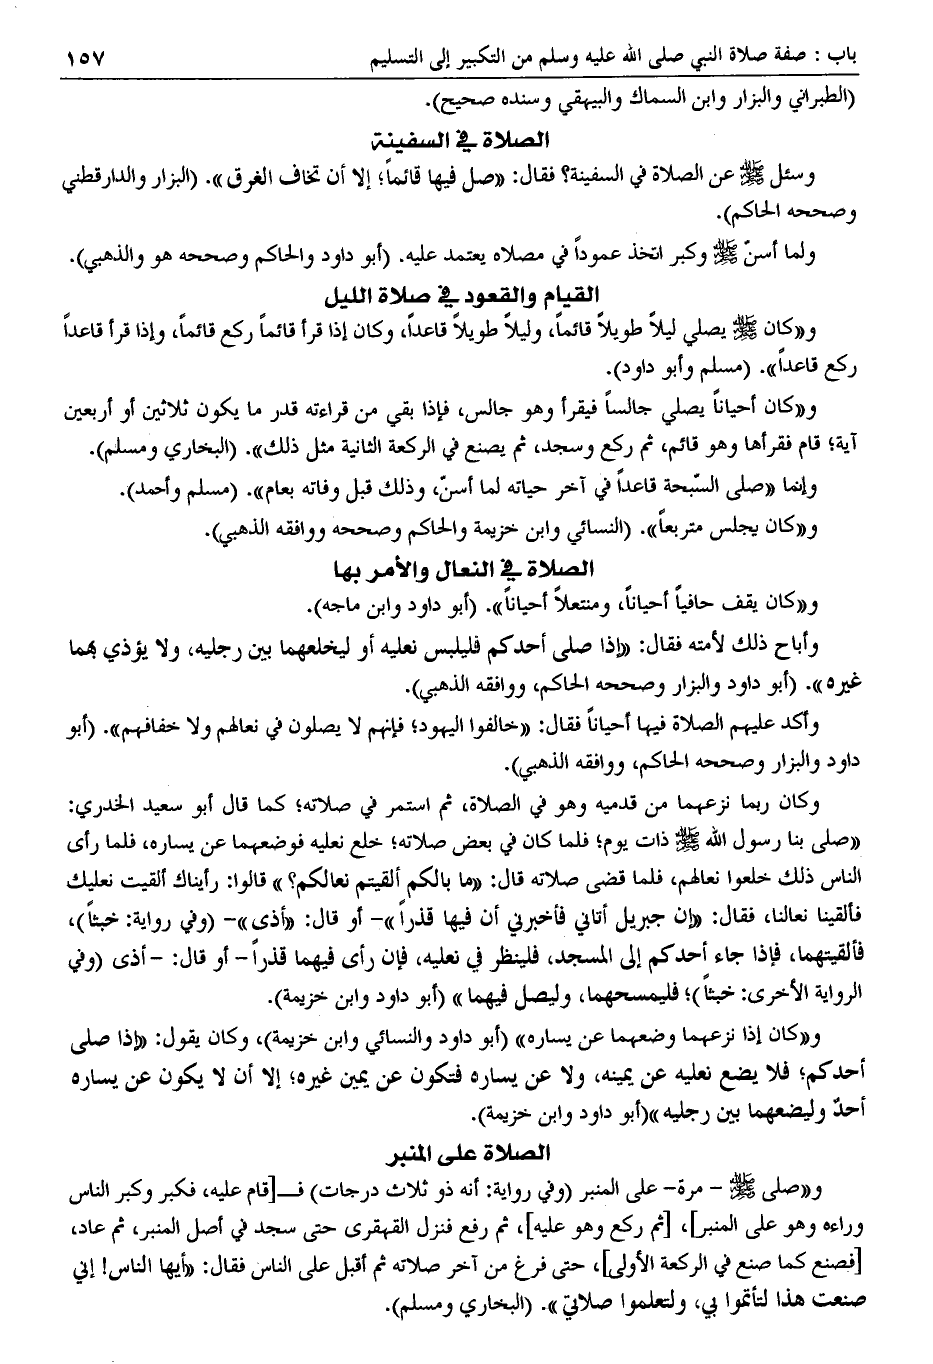 باب : صفة صلاة النبي صلى الله عليه وسلم من التكبير إلى التسليم ١٥٧
(الطبراني والبزار وابن السماك والبيهقي وسنده صحيح).
الصلاة في السفينة
وسئل ﷺ عن الصلاة في السفينة؟ فقال: «صل فيها قائماً؛ إلا أن تخاف الغرق». (البزار والدارقطني
وصححه الحاكم).
ولما أسنّ ﷺ وكبر اتخذ عموداً في مصلاه يعتمد عليه. (أبو داود والحاكم وصححه هو والذهبي).
القيام والقعود في صلاة الليل
و«كان ﷺ يصلي ليلاً طويلاً قائماً، وليلاً طويلاً قاعداً، وكان إذا قرأ قائماً ركع قائماً، وإذا قرأ قاعداً
ركع قاعداً». (مسلم وأبو داود).
و«كان أحياناً يصلي جالساً فيقرأ وهو جالس، فإذا بقي من قراءته قدر ما يكون ثلاثين أو أربعين
آية؛ قام فقرأها وهو قائم، ثم ركع وسجد، ثم يصنع في الركعة الثانية مثل ذلك». (البخاري ومسلم).
وإنما «صلى السّبحة قاعداً في آخر حياته لما أسنّ، وذلك قبل وفاته بعام». (مسلم وأحمد).
و«كان يجلس متربعاً». (النسائي وابن خزيمة والحاكم وصححه ووافقه الذهبي).
الصلاة في النعال والأمر بها
و«كان يقف حافياً أحياناً، ومنتعلاً أحياناً». (أبو داود وابن ماجه).
وأباح ذلك لأمته فقال: «إذا صلى أحدكم فليلبس نعليه أو ليخلعهما بين رجليه، ولا يؤذي بهما
غيره». (أبو داود والبزار وصححه الحاكم، ووافقه الذهبي).
وأكد عليهم الصلاة فيها أحياناً فقال: «خالفوا اليهود؛ فإنهم لا يصلون في نعالهم ولا خفافهم». (أبو
داود والبزار وصححه الحاكم، ووافقه الذهبي).
وكان ربما نزعهما من قدميه وهو في الصلاة، ثم استمر في صلاته؛ كما قال أبو سعيد الخدري:
«صلى بنا رسول الله ﷺ ذات يوم؛ فلما كان في بعض صلاته؛ خلع نعليه فوضعهما عن يساره، فلما رأى
الناس ذلك خلعوا نعالهم، فلما قضى صلاته قال: «ما بالكم ألقيتم نعالكم؟» قالوا: رأيناك ألقيت نعليك
فألقينا نعالنا، فقال: «إن جبريل أتاني فأخبرني أن فيها قذراً»- أو قال: «أذى»- (وفي رواية: خبثاً)،
فألقيتهما، فإذا جاء أحدكم إلى المسجد، فلينظر في نعليه، فإن رأى فيهما قذراً- أو قال: -أذى (وفي
الرواية الأخرى: خبثاً)؛ فليمسحهما، وليصل فيهما» (أبو داود وابن خزيمة).
و«كان إذا نزعهما وضعهما عن يساره» (أبو داود والنسائي وابن خزيمة)، وكان يقول: «إذا صلى
أحدكم؛ فلا يضع نعليه عن يمينه، ولا عن يساره فتكون عن يمين غيره؛ إلا أن لا يكون عن يساره
أحدٌ وليضعهما بين رجليه»(أبو داود وابن خزيمة).
الصلاة على المنبر
و«صلى ﷺ - مرة- على المنبر (وفي رواية: أنه ذو ثلاث درجات) فـ[قام عليه، فكبر وكبر الناس
وراءه وهو على المنبر]، [ثم ركع وهو عليه]، ثم رفع فنزل القهقرى حتى سجد في أصل المنبر، ثم عاد،
[فصنع كما صنع في الركعة الأولى]، حتى فرغ من آخر صلاته ثم أقبل على الناس فقال: «أيها الناس! إني
صنعت هذا لتأتموا بي، ولتعلموا صلاتي». (البخاري ومسلم).